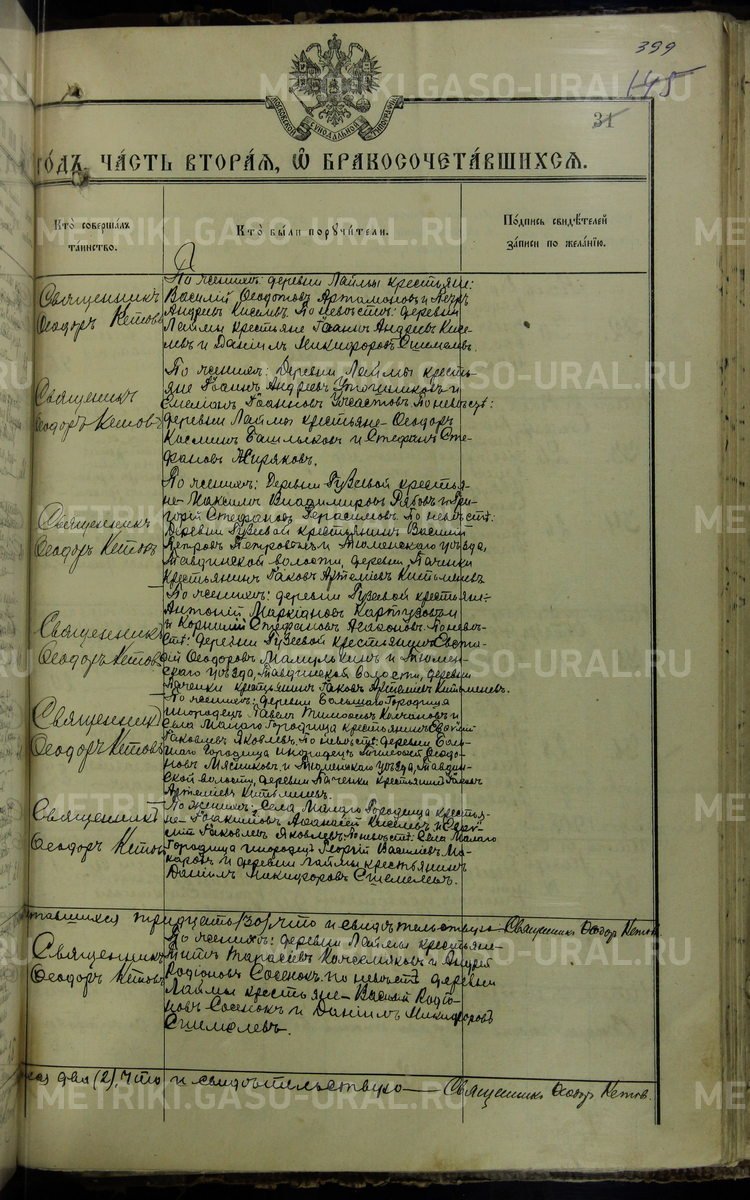 399
145
31
МОСКОВСКОЙ СѴНОДАЛЬНОЙ ТИПОГРАФІИ
го́дъ, ча́сть втора́я, ѡ҆ бракосочета́вшихся.
Кто̀ соверша́лъ
та́инство.
Кто̀ бы́ли порꙋчи́тели.
По́дпись свидѣ́телей
за́писи по жела́нію.
Священникъ
Ѳеодоръ Кетовъ
По женихѣ: деревни Лаймы крестьяне:
Василій Ѳеодотовъ Артамоновъ и Петръ
Андреевъ Киселевъ. По невѣстѣ: деревни
Лаймы крестьяне Іоаннъ Андреевъ Кисе-
левъ и Даніилъ Никифоровъ Сшемелевъ.
Священникъ
Ѳеодоръ Кетовъ
По женихѣ: Деревни Лаймы кресть-
яне Іоаннъ Андреевъ и
Емельянъ Іоанновъ По невѣстѣ:
деревни Лаймы крестьяне Ѳеодоръ
Косминъ Башлыковъ и Стефанъ Сте-
фановъ Жиряковъ.
Священникъ
Ѳеодоръ Кетовъ
По женихѣ: Деревни Гузеевой крестья-
не Максимъ Владимировъ Рябовъ и Гри-
горій Стефановъ Герасимовъ. По невѣстѣ:
Деревни Гузеевой крестьянинъ Василій
Петровъ и Тюменскаго уѣзда,
Тавдинской волости, деревни Паченки
крестьянинъ Іаковъ Артеміевъ
Священникъ
Ѳеодоръ Кетовъ
По женихѣ: деревни Гузеевой крестьяне:
Антоній Маркіановъ Картузовъ
и Корнилій Стефановъ Агафоновъ. По невѣс-
тѣ: Деревни Гузеевой крестьянинъ
Ѳеодоровъ и Тюмен-
скаго уѣзда, Тавдинской волости, деревни
Паченки крестьянинъ Іаковъ Артеміевъ
Священникъ
Ѳеодоръ Кетовъ
По женихѣ: деревни Большаго Городища
инородецъ Павелъ Тимофеевъ Колчановъ и
Села Малаго Городища крестьянинъ
Іаковлевъ Яковлевъ. По невѣстѣ: деревни Боль-
шаго Городища инородецъ Ѳеодо-
ровъ Мясниковъ и Тюменскаго уѣзда, Тавдин-
ской волости, деревни Паченки крестьянинъ Іаковъ
Артеміевъ
Священникъ
Ѳеодоръ Кетовъ
По женихѣ: Села Малаго Городища крестья-
не Іоакимъ Аѳанасіевъ Киселевъ и
Іаковлевъ Яковлевъ. По невѣстѣ: Села Малаго
Городища инородецъ Георгій Васильевъ Ма-
каровъ и деревни Лаймы крестьянинъ
Даніилъ Никифоровъ Сшемелевъ.
тавшихся тридцать (30), что и свидѣтельствую Священникъ Ѳеодоръ Кетовъ.
Священникъ
Ѳеодоръ Кетовъ
По женихѣ: деревни Лаймы крестьяне
Тарасіевъ и Андрей
Родіоновъ Сосенокъ. По невѣстѣ деревни
Лаймы крестьяне Василій Родіо-
новъ Сосенокъ и Даніилъ Никифоровъ
Сшемелевъ.
два (2), что и свидѣтельствую Священникъ Ѳеодоръ Кетовъ.
METRIKI.GASO-URAL.RU